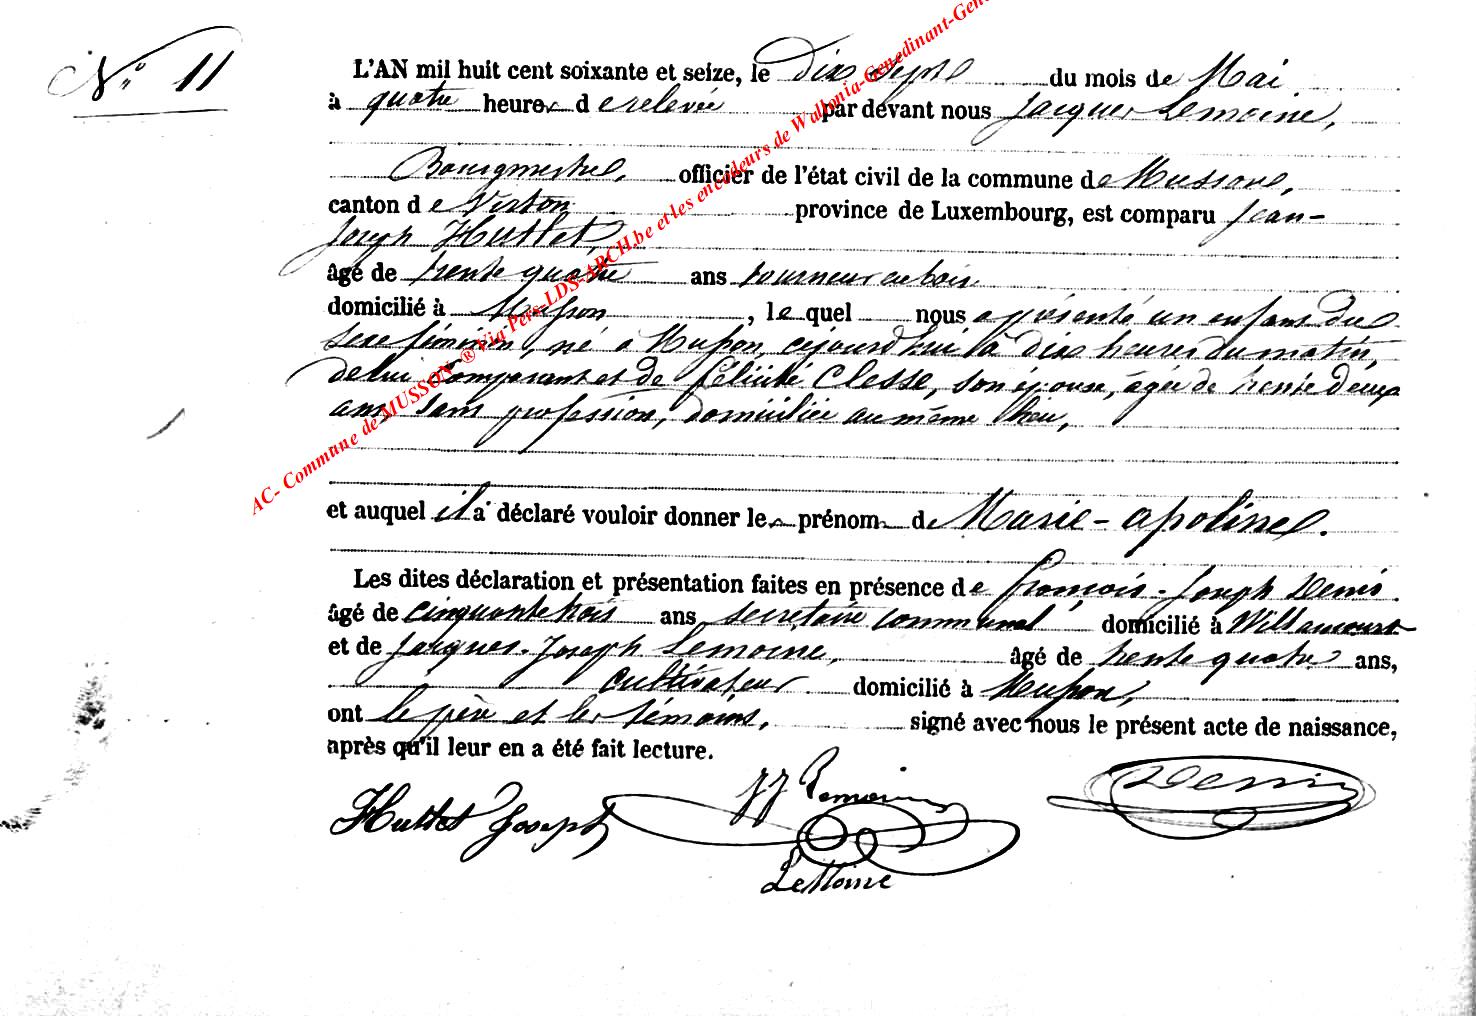 N° 11
L'AN mil huit cent soixante et seize, le Dix Sept du mois de Mai
à quatre heures de relevée par devant nous Jacques Lemoine,
Bourgmestre, officier de l'état civil de la commune de Musson,
canton de Virton province de Luxembourg, est comparu Jean-
Joseph Huttet,
âgé de trente quatre ans tourneur en bois
domicilié à Musson, le quel nous a présenté un enfant du
sexe féminin, né à Musson, cejourd'hui à dix heures du matin,
de lui comparant et de Félicité Clesse, son épouse, âgée de trente deux
ans, sans profession, domiciliée au même lieu,
et auquel il a déclaré vouloir donner les prénoms de Marie-apoline.
Les dites déclaration et présentation faites en présence de françois-Joseph Denis
âgé de cinquante trois ans secrétaire communal domicilié à Willancourt
et de Jacques-Joseph Lemoine, âgé de trente quatre ans,
cultivateur domicilié à Musson,
ont le père et les témoins, signé avec nous le présent acte de naissance,
après qu'il leur en a été fait lecture.
Huttet Joseph
JJ Lemoine
Denis
LeMoine
AC- Commune de MUSSON ® Via Pers-LDS-ARCH.be et les encodeurs de Wallonia-Genedinant-Gene